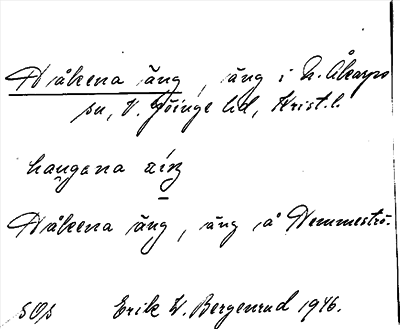 Håkena äng, äng i N. Åkarps
sn, V. Göinge hd, Krist. l.
haugana äiŋ
Håkena äng, äng å Hemmestró.
SOs Erik W. Bergenrud 1946.